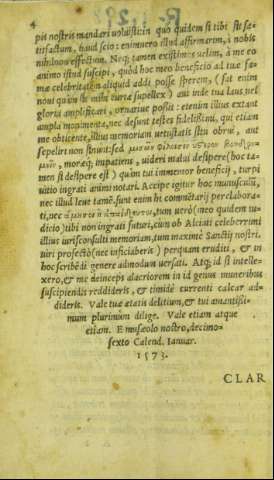 4
pis nostris mandari voluisti: in quo quidem si tibi sit satisfactum, haud scio: enimuero illud affirmarim, à nobis
nihil non effectum. Neq; tamen existimes uelim, à me eo
animo istud suscipi, quòd hoc meo beneficio ad tuæ famæ celebritatem aliquid addi posse sperem, (sat enim
noui quàm sit mihi curta supellex) aut inde tua laus uel
gloria amplificari, ornariue possit: etenim illius extant
ampla monumenta, nec desunt testes fidelissimi, qui etiam
me obticente, illius memoriam uetustatis situ obrui, aut
sepeliri non sinunt: sed
, moræq; impatiens, uideri malui desipere (hoc tamen si desipere est) quàm tui immemor beneficij, turpi
uitio ingrati animi notari. Accipe igitur hoc munusculum,
nec illud leue tamē: sunt enim hi commētarij perelaborati, nec , tum uerò (meo quidem iudicio) tibi non ingrati futuri, cùm ob Alciati celeberrimi
illius iurisconsulti memoriam, tum maximè Sanctij nostri.
uiri profectò (nec inficiaberis) perquam eruditi, & in
hoc scribēdi genere admodum uersati. Atq; id si intellexero, & me deinceps alacriorem in id genus muneribus
suscipiendis reddideris, & timidè currenti calcar addideris. Vale tuæ ætatis delitium, & tui amantissimum plurimùm dilige. Vale etiam atque
etiam. E musæolo nostro, decimosexto Calend. Ianuar.
1573.
CLAR